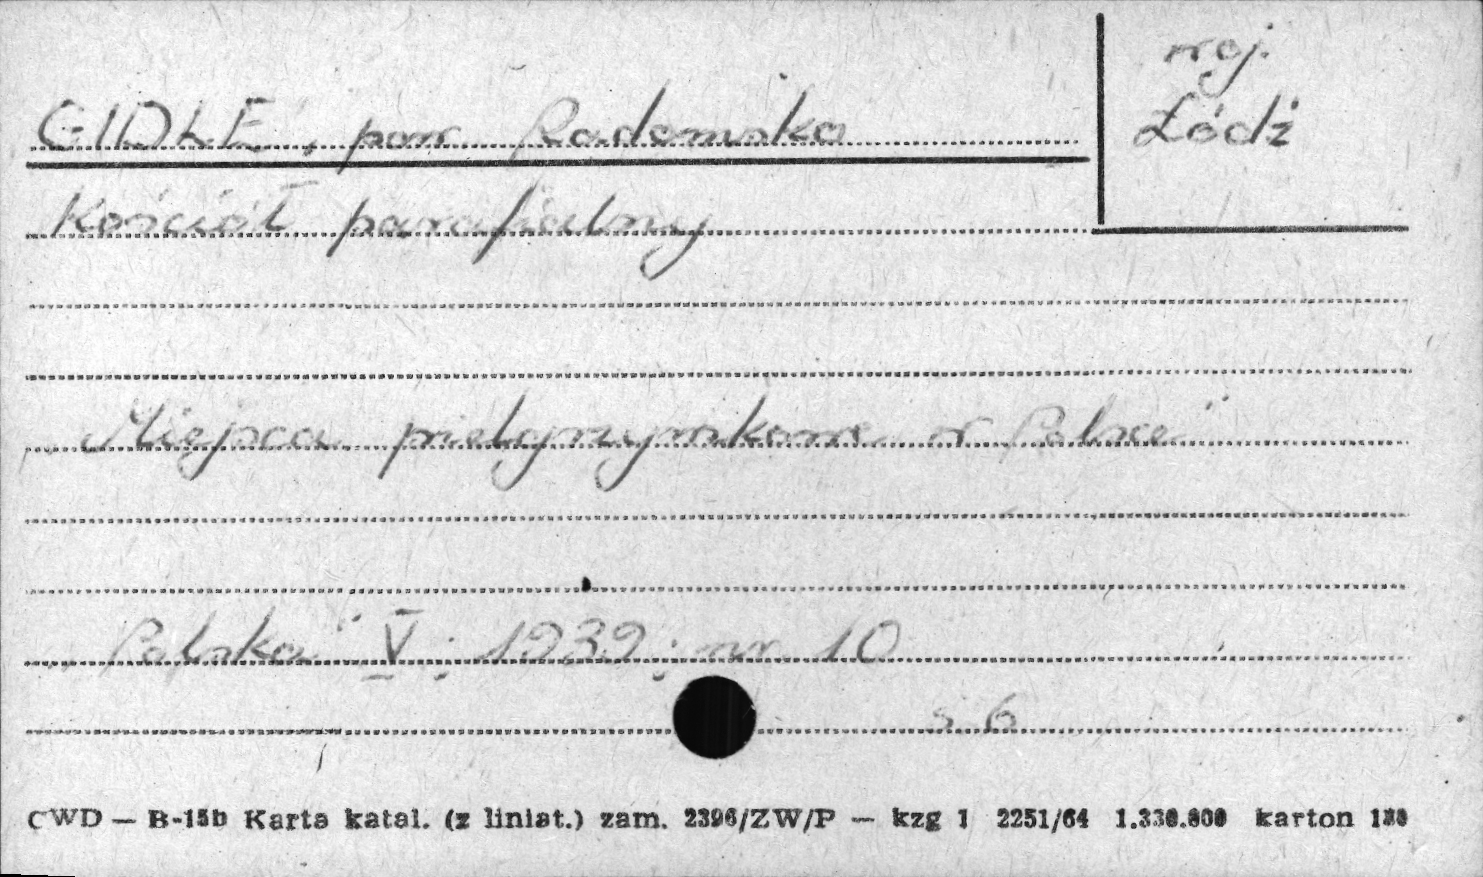 woj.
Łódź
GIDLE, pow. Radomsko
Kościół parafialny
„Miejsca pielgrzymkowe w Polsce"
„Polska" V, 1939, nr. 10
s. 6
CWD — B-15b Karta katal. (z liniat.) zam. 2396/ZW/P — kzg 1 2251/64 karton